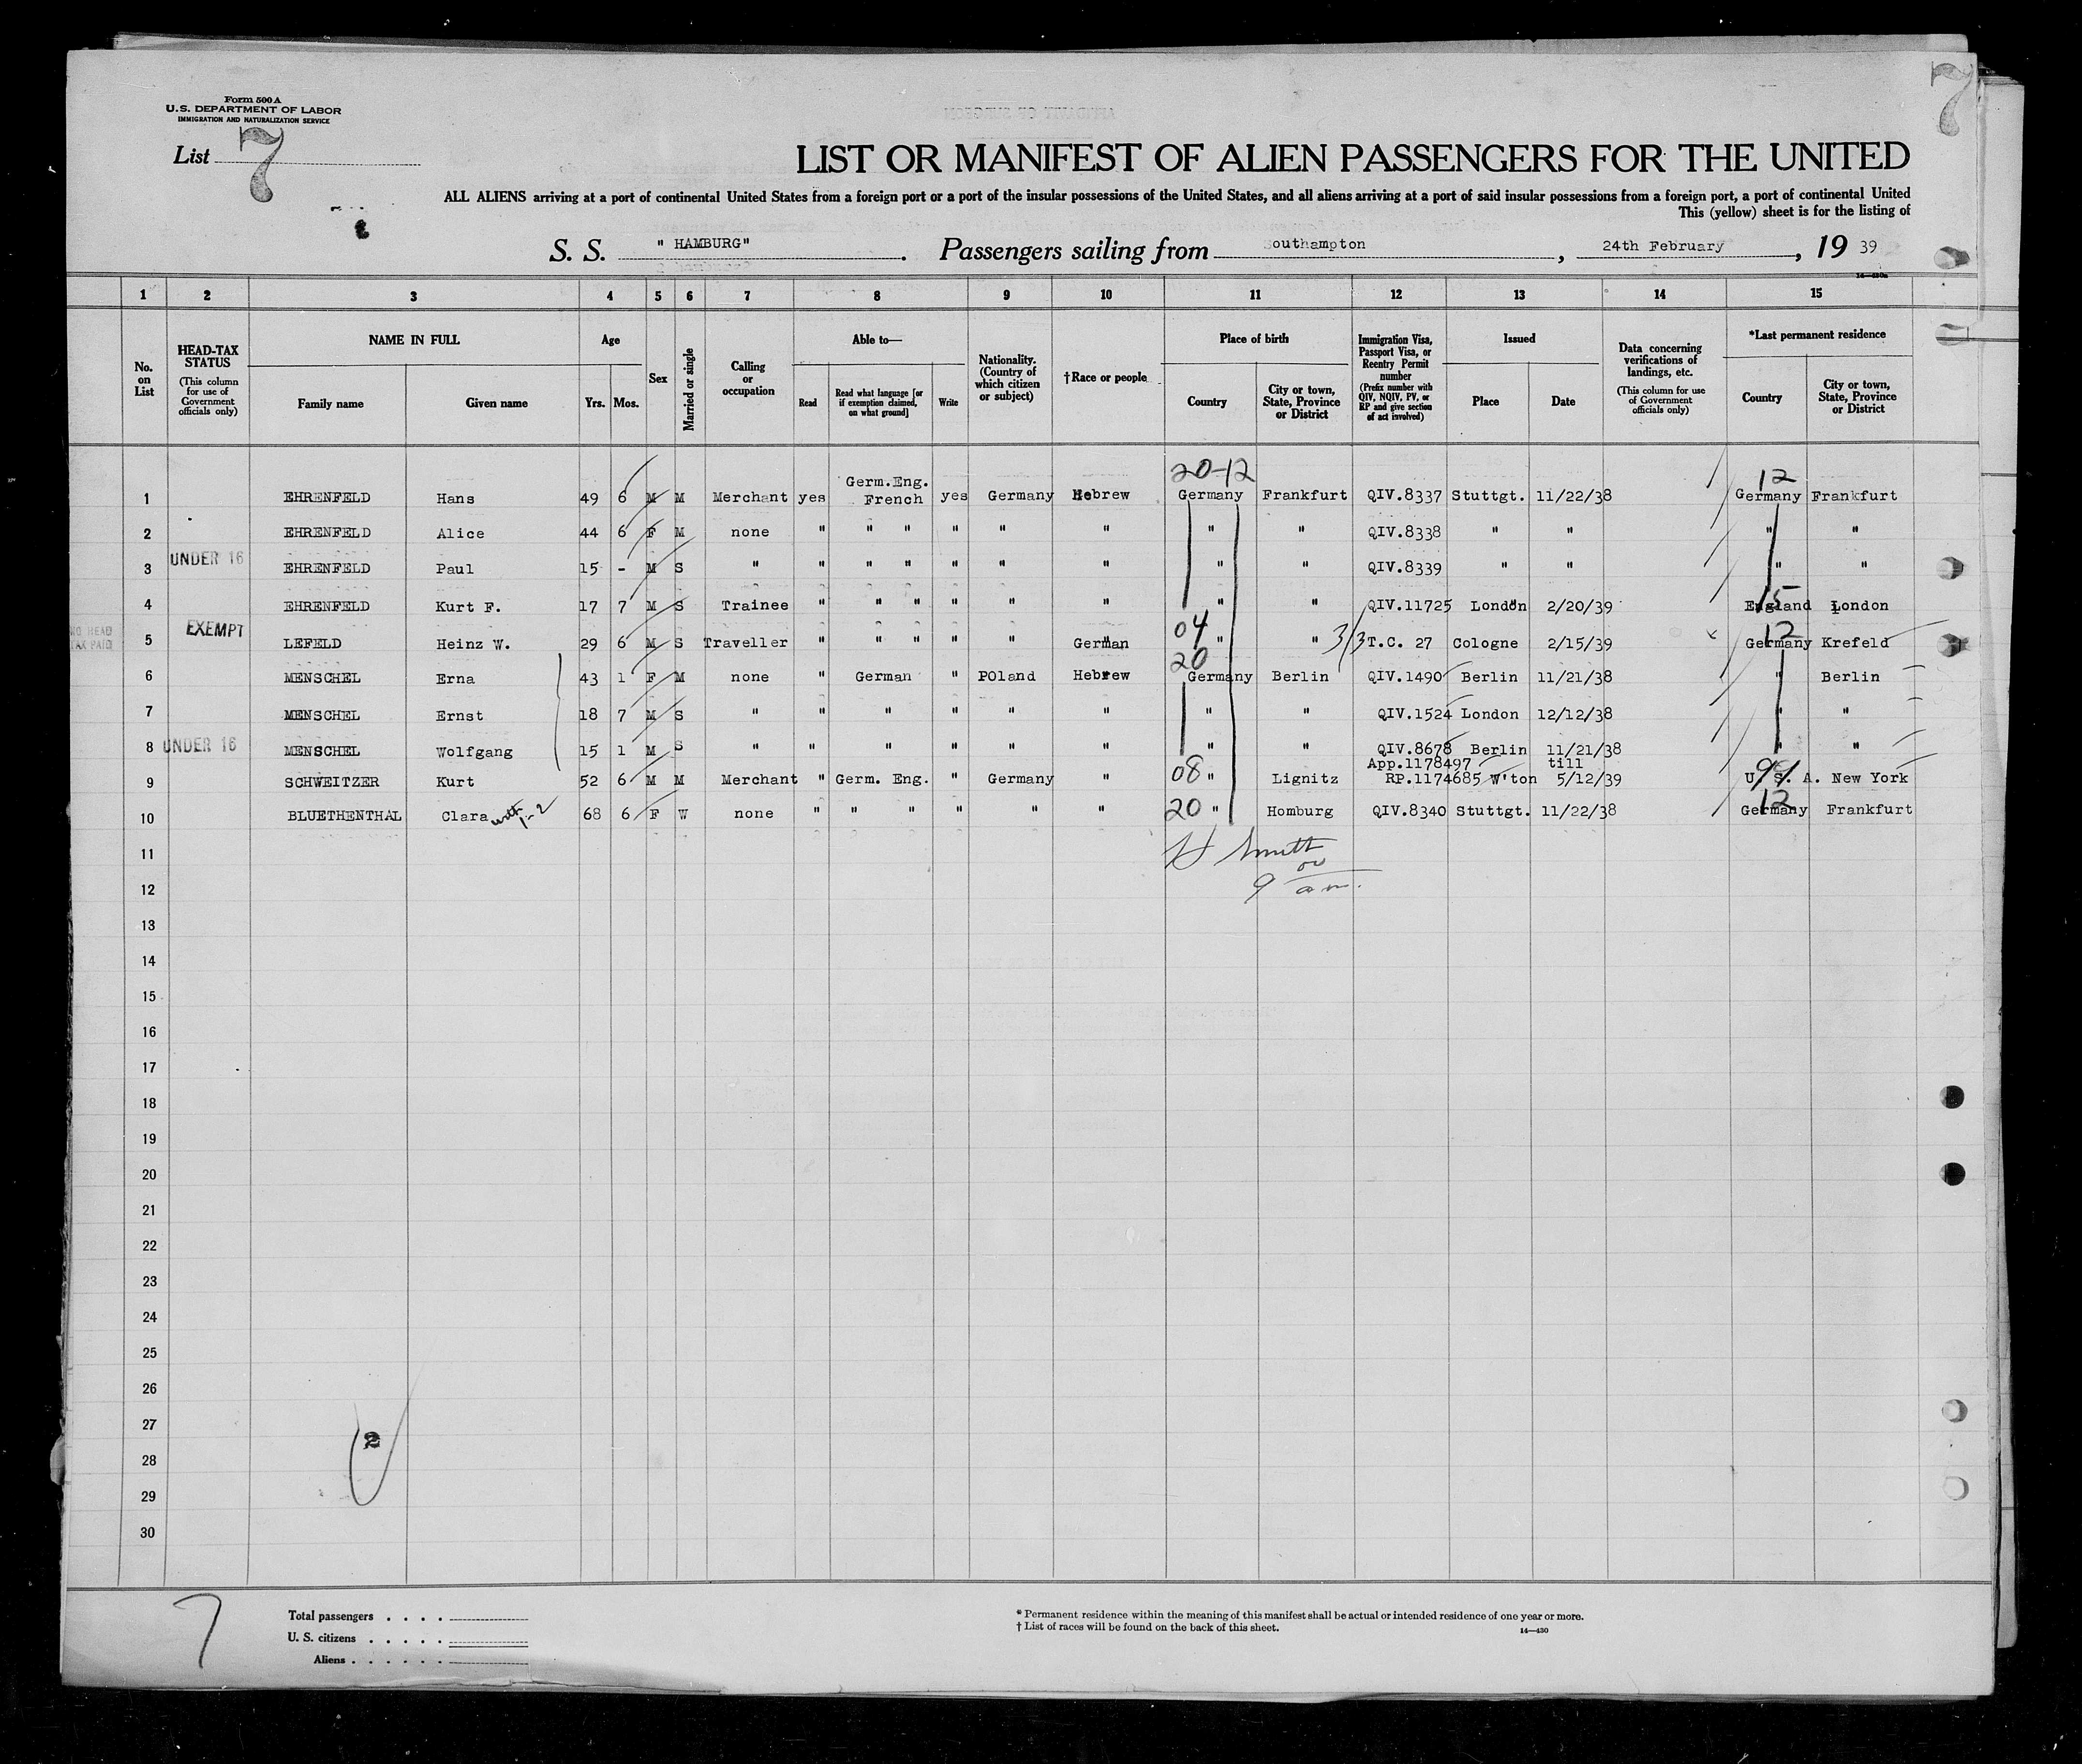 Form 500 A
U.S. DEPARTMENT OF LABOR
IMMIGRATION AND NATURALIZATION SERVICE
List 7
7
LIST OR MANIFEST OF ALIEN PASSENGERS FOR THE UNITED
ALL ALIENS arriving at a port of continental United States from a foreign port or a port of the insular possessions of the United States, and all aliens arriving at a port of said insular possessions from a foreign port, a port of continental United
This (yellow) sheet is for the listing of
S. S. " HAMBURG" . Passengers sailing from outhampton , 24th February , 19 39
1 2 3 4 5 6 7 8 9 10 11 12 13 14 15
No. on List
HEAD-TAX STATUS (This column for use of Government officials only)
NAME IN FULL
Family name Given name
Age
Yrs. Mos.
Sex
Married or single
Calling or occupation
Able to—
Read Read what language [or if exemption claimed, on what ground] Write
Nationality. (Country of which citizen or subject)
†Race or people
Place of birth
Country City or town, State, Province or District
Immigration Visa, Passport Visa, or Reentry Permit number (Prefix number with QIV, NQIV, PV, or RP and give section of act involved)
Issued
Place Date
Data concerning verifications of landings, etc. (This column for use of Government officials only)
*Last permanent residence
Country City or town, State, Province or District
20-12 12
Germ.Eng.
1 EHRENFELD Hans 49 6 M M Merchant yes French yes Germany Hebrew Germany Frankfurt QIV.8337 Stuttgt. 11/22/38 Germany Frankfurt
2 EHRENFELD Alice 44 6 F M none " " " " " " " " QIV.8338 " " " "
UNDER 16
3 EHRENFELD Paul 15 - M S " " " " " " " " " QIV.8339 " " " "
15
4 EHRENFELD Kurt F. 17 7 M S Trainee " " " " " " " " QIV.11725 London 2/20/39 England London
NO HEAD TAX PAID EXEMPT 04 12
5 LEFELD Heinz W. 29 6 M S Traveller " " " " " German " " 3/3 T.C. 27 Cologne 2/15/39 Germany Krefeld
20
6 MENSCHEL Erna 43 1 F M none " German " POland Hebrew Germany Berlin QIV.1490 Berlin 11/21/38 " Berlin
7 MENSCHEL Ernst 18 7 M S " " " " " " " " QIV.1524 London 12/12/38 " "
8 UNDER 16 MENSCHEL Wolfgang 15 1 M S " " " " " " " " QIV.8678 Berlin 11/21/38 " "
App.1178497 till
9 SCHWEITZER Kurt 52 6 M M Merchant " Germ. Eng. " Germany " 08 " Lignitz RP.1174685 W'ton 5/12/39 U. S. A. New York
99
12
10 BLUETHENTHAL Clara with 1-2 68 6 F W none " " " " " " 20 " Homburg QIV.8340 Stuttgt. 11/22/38 Germany Frankfurt
11
12
9 am.
13
14
15
16
17
18
19
20
21
22
23
24
25
26
27
28
29
30
2
7
Total passengers . . . .
U. S. citizens . . . . .
Aliens . . . . . .
* Permanent residence within the meaning of this manifest shall be actual or intended residence of one year or more.
† List of races will be found on the back of this sheet.
14—430